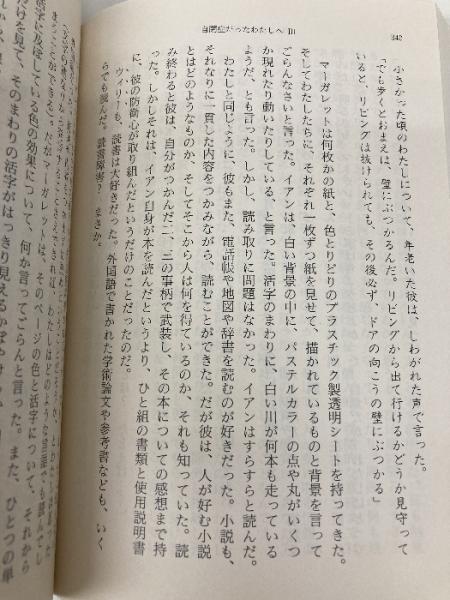 342
自閉症だったわたしへ III
小さかった頃のわたしについて、年老いた彼は、しわがれた声で言った。
「でも歩くとおまえは、壁にぶつかるんだ。リビングから出て行けるかどうか見守って
いると、リビングは抜けられても、その後必ず、ドアの向こうの壁にぶつかる」
マーガレットは何枚かの紙と、色とりどりのプラスチック製透明シートを持ってきた。
そしてわたしたちに、それぞれ一枚ずつ紙を見せて、描かれているものと背景を言って
ごらんなさいと言った。イアンは、白い背景の中に、パステルカラーの点や丸がいくつ
か現れたり動いたりしている、と言った。活字のまわりに、白い川が何本も走っている
ようだ、とも言った。しかし、読み取りに問題はなかった。イアンはすらすらと読んだ。
わたしと同じように、彼もまた、電話帳や地図や辞書を読むのが好きだった。小説も、
それなりに一貫した内容をつかみながら、読むことができた。だが彼は、人が好む小説
とはどのようなものか、そしてそこから人は何を得ているのか、それも知っていた。読
み終わると彼は、自分がつかんだ二、三の事柄で武装し、その本についての感想まで持
った。しかしそれは、イアン自身が本を読んだというより、ひと組の書類と使用説明書
に、彼の防衛心が取り組んだというだけのことだったのだ。
ウィリーも、読書は大好きだった。外国語で書かれた学術論文や参考書なども、いく
らでも読んだ。読書障害？　まさか。
まうことができる。だがマーガレットは、
活字に及ぼしている色の効果について、何か言ってごらんと言った。また、ひとつの単
だけを見て、そのまわりの活字がはっきり見えるかぼやけ